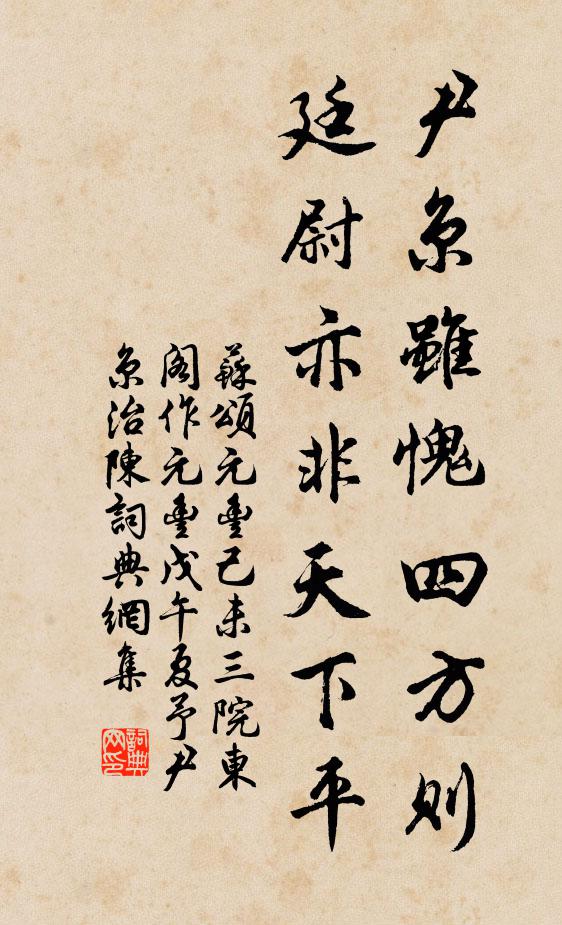 尹京雖愧四方則
廷尉亦非天下平
蘇頌元豐己未三院東
閣作元豐戊午夏予尹
京治陳詞典網集
詞典網印